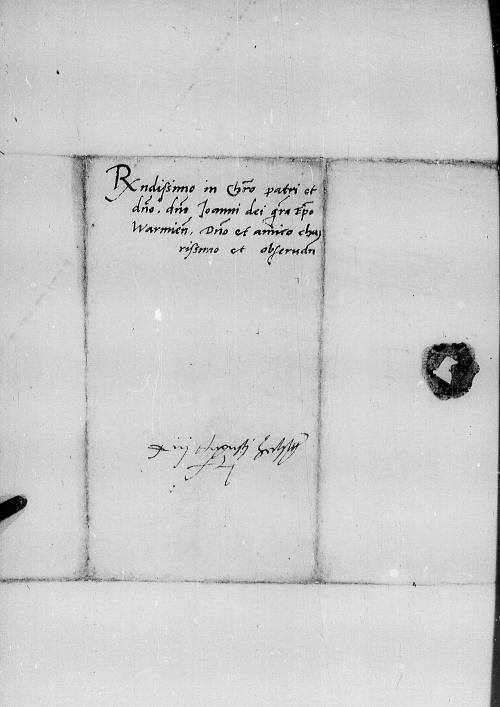 Rndissimo in Chro patri et
dno, dno Joanni dei gra Epo
Warmien, Dno et amico cha
rissimo et obseruan